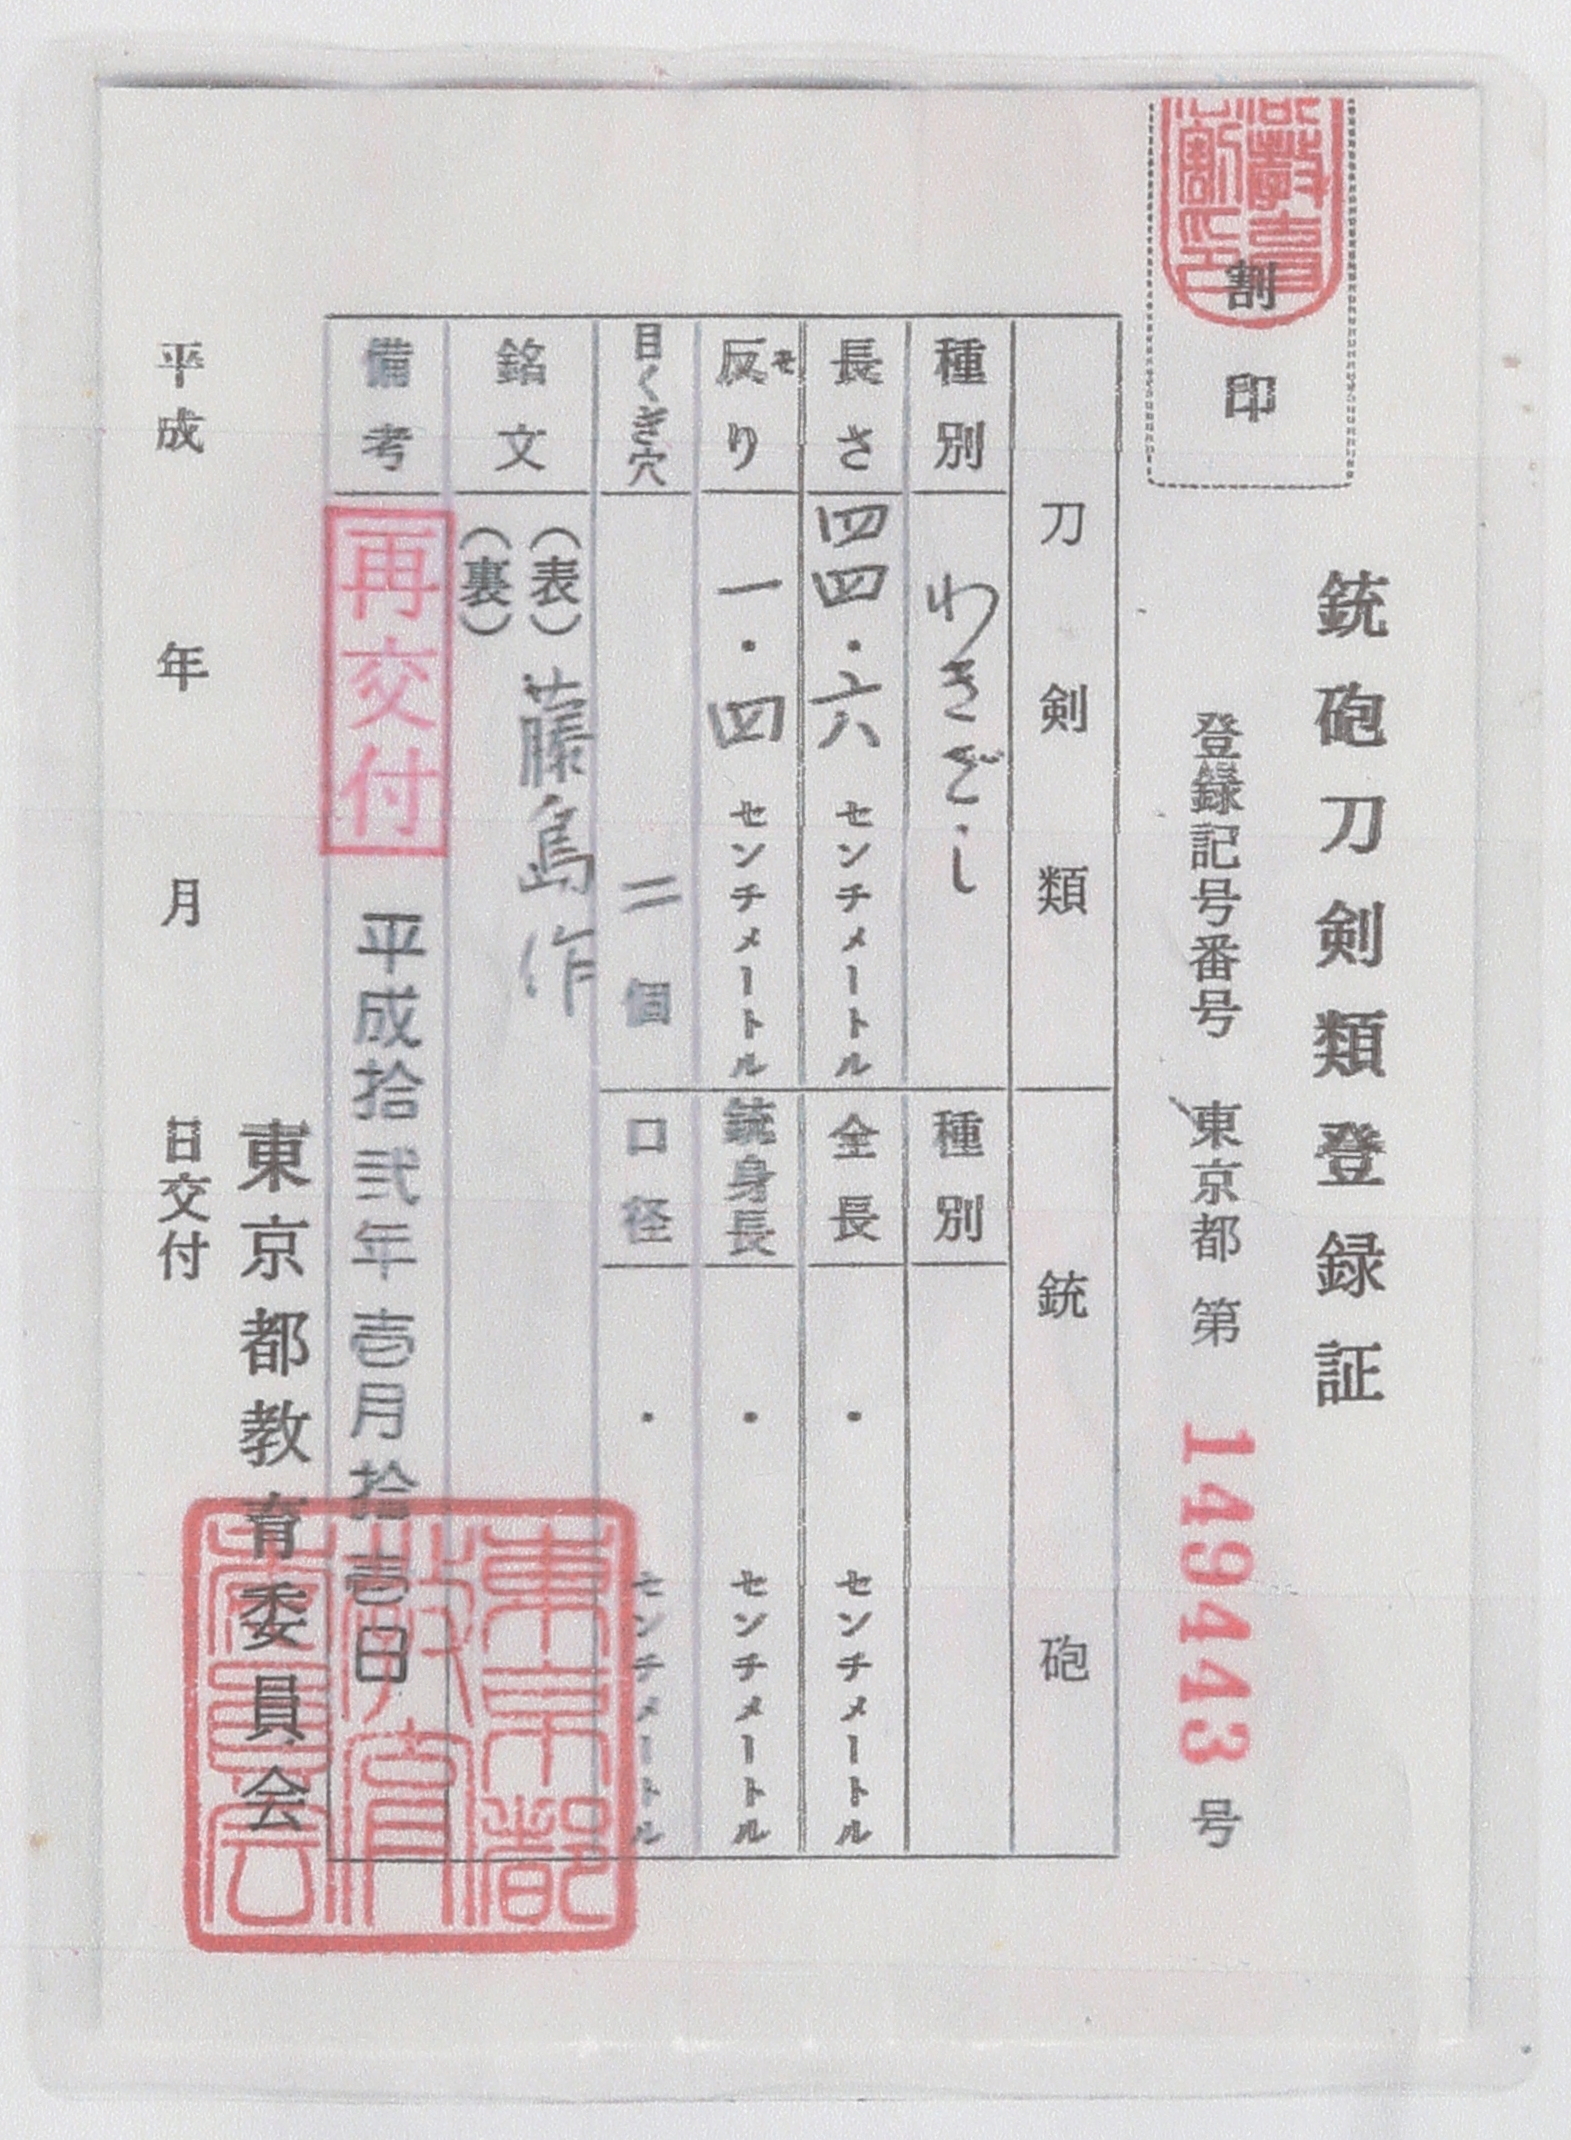 銃砲刀剣類登録証
割印
登録記号番号 東京都 第 149443 号
刀剣類
銃砲
種別 わきざし
種別
長さ 四四・六 センチメートル
全長 ・ センチメートル
反り 一・四 センチメートル
銃身長 ・ センチメートル
目くぎ穴 二 個
口径 ・ センチメートル
銘文 (表) 藤島作
(裏)
備考 再交付 平成拾弐年壱月拾壱日
東京都教育委員会
東京都教育委員会
平成 年 月 日交付